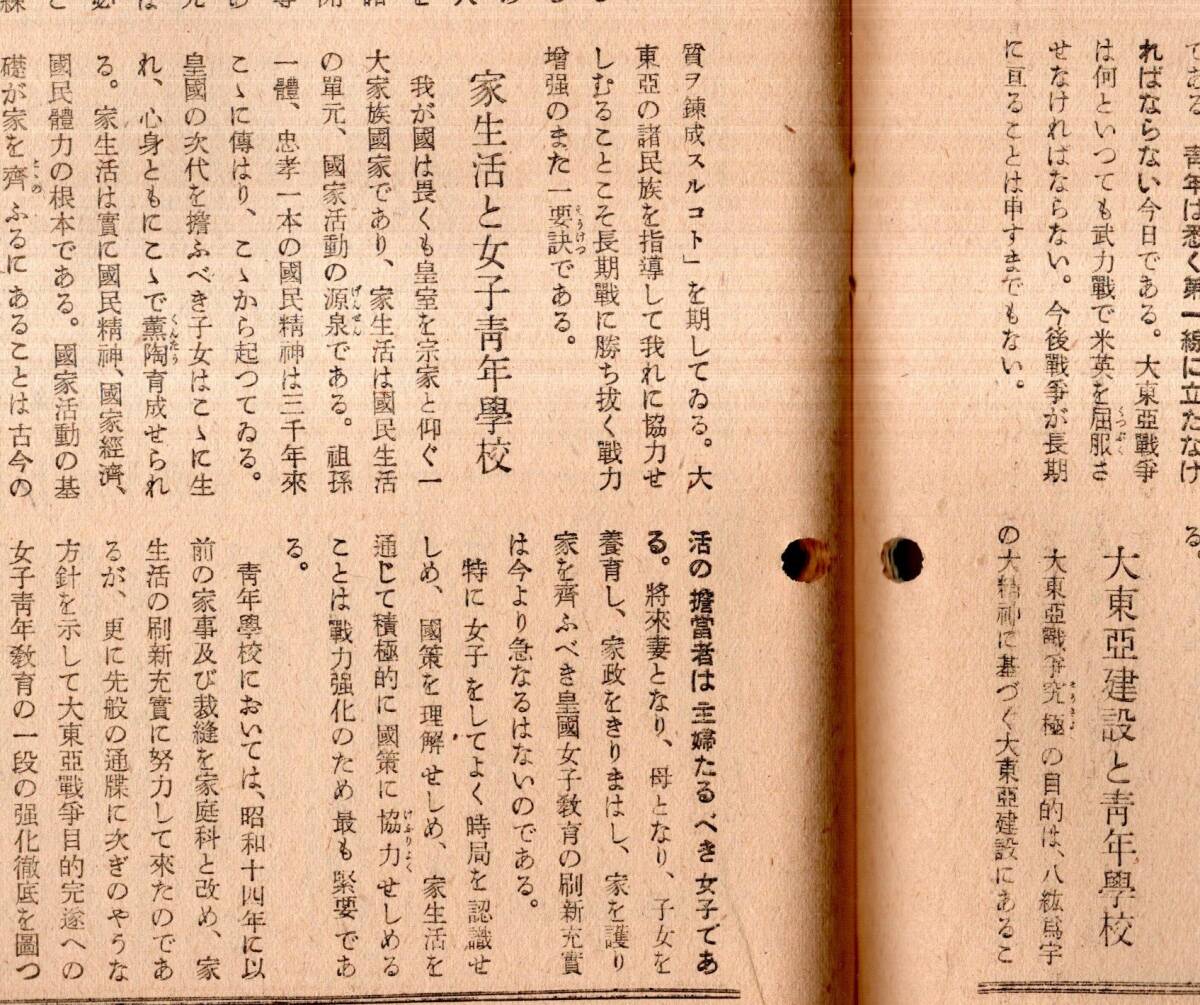 である。青年は悉く第一線に立たなけ
ればならない今日である。大東亞戰爭
は何といつても武力戰で米英を屈服さ
せなければならない。今後戰爭が長期
に亘ることは申すまでもない。
る。
大東亞建設と靑年學校
大東亞戰爭究極の目的は、八紘爲宇
の大精神に基づく大東亞建設にあるこ
質ヲ鍊成スルコト」を期してゐる。大
東亞の諸民族を指導して我れに協力せ
しむることこそ長期戰に勝ち拔く戰力
增强のまた一要訣である。
家生活と女子靑年學校
我が國は畏くも皇室を宗家と仰ぐ一
大家族國家であり、家生活は國民生活
の單元、國家活動の源泉である。祖孫
一體、忠孝一本の國民精神は三千年來
こゝに傳はり、こゝから起つてゐる。
皇國の次代を擔ふべき子女はこゝに生
れ、心身ともにこゝで薰陶育成せられ
る。家生活は實に國民精神、國家經濟、
國民體力の根本である。國家活動の基
礎が家を齊ふるにあることは古今の
活の擔當者は主婦たるべき女子であ
る。將來妻となり、母となり、子女を
養育し、家政をきりまはし、家を護り
家を齊ふべき皇國女子敎育の刷新充實
は今より急なるはないのである。
特に女子をしてよく時局を認識せ
しめ、國策を理解せしめ、家生活を
通じて積極的に國策に協力せしめる
ことは戰力强化のため最も緊要であ
る。
靑年學校においては、昭和十四年に以
前の家事及び裁縫を家庭科と改め、家
生活の刷新充實に努力して來たのであ
るが、更に先般の通牒に次ぎのやうな
方針を示して大東亞戰爭目的完遂への
女子靑年敎育の一段の强化徹底を圖つ